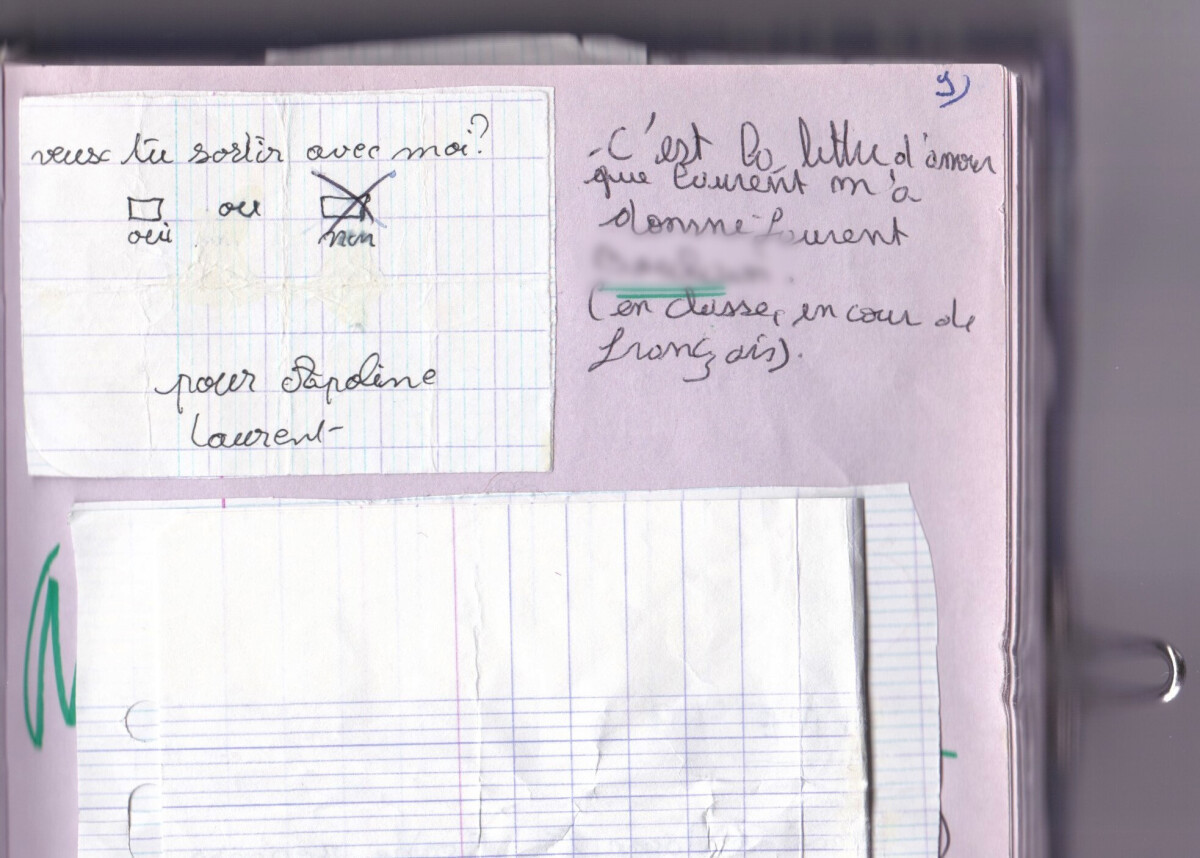 veux tu sortir avec moi?
ou
oui non
pour Apoline
Laurent
9)
- C'est la lettre d'amour
que Laurent m'a
donné Laurent
(en classe, en cour de
français).